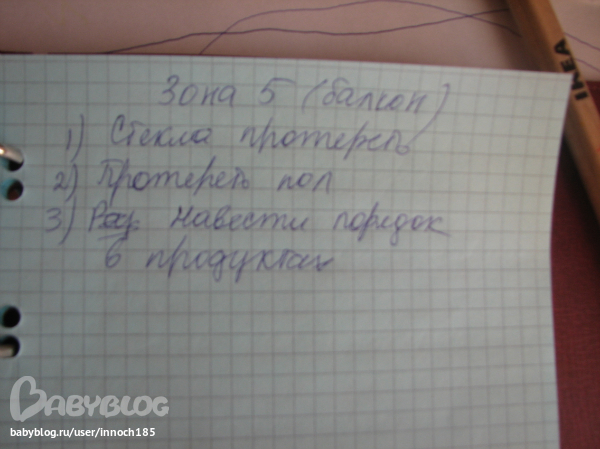 IKEA
Зона 5 (балкон)
1) Стекла протереть
2) Протереть пол
3) Навести порядок
в продуктах
BABYBLOG
babyblog.ru/user/innoch185